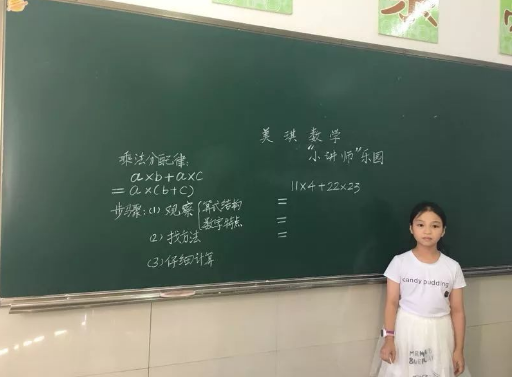 美琪数学
“小讲师”乐园
乘法分配律:
a×b+a×c
=a×(b+c)
步骤:(1)观察{算式结构
数字特点
(2)找方法
(3)仔细计算
11×4+22×23
=
=
=
candy pudding